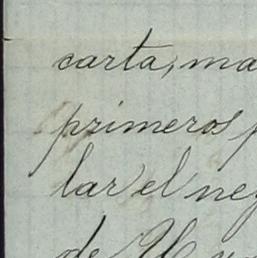 carta, ma
primeros p
lar el neg
de U